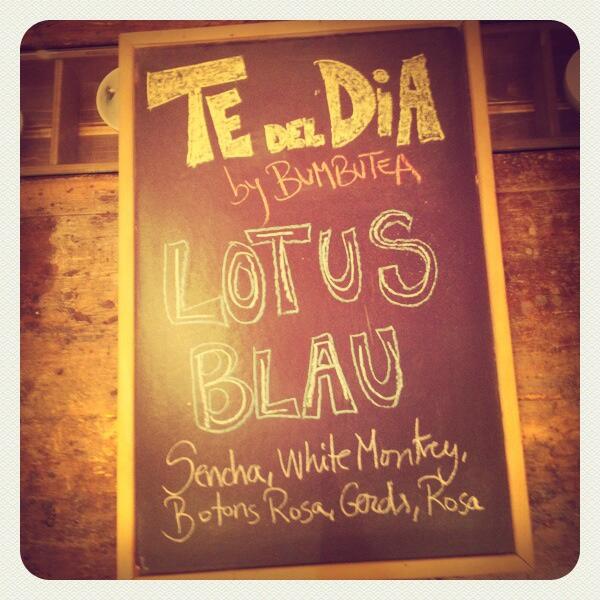 TE DEL DiA
by BUMBUTEA
LOTUS
BLAU
Sencha, White Monkey,
Botons Rosa, Gerds, Rosa